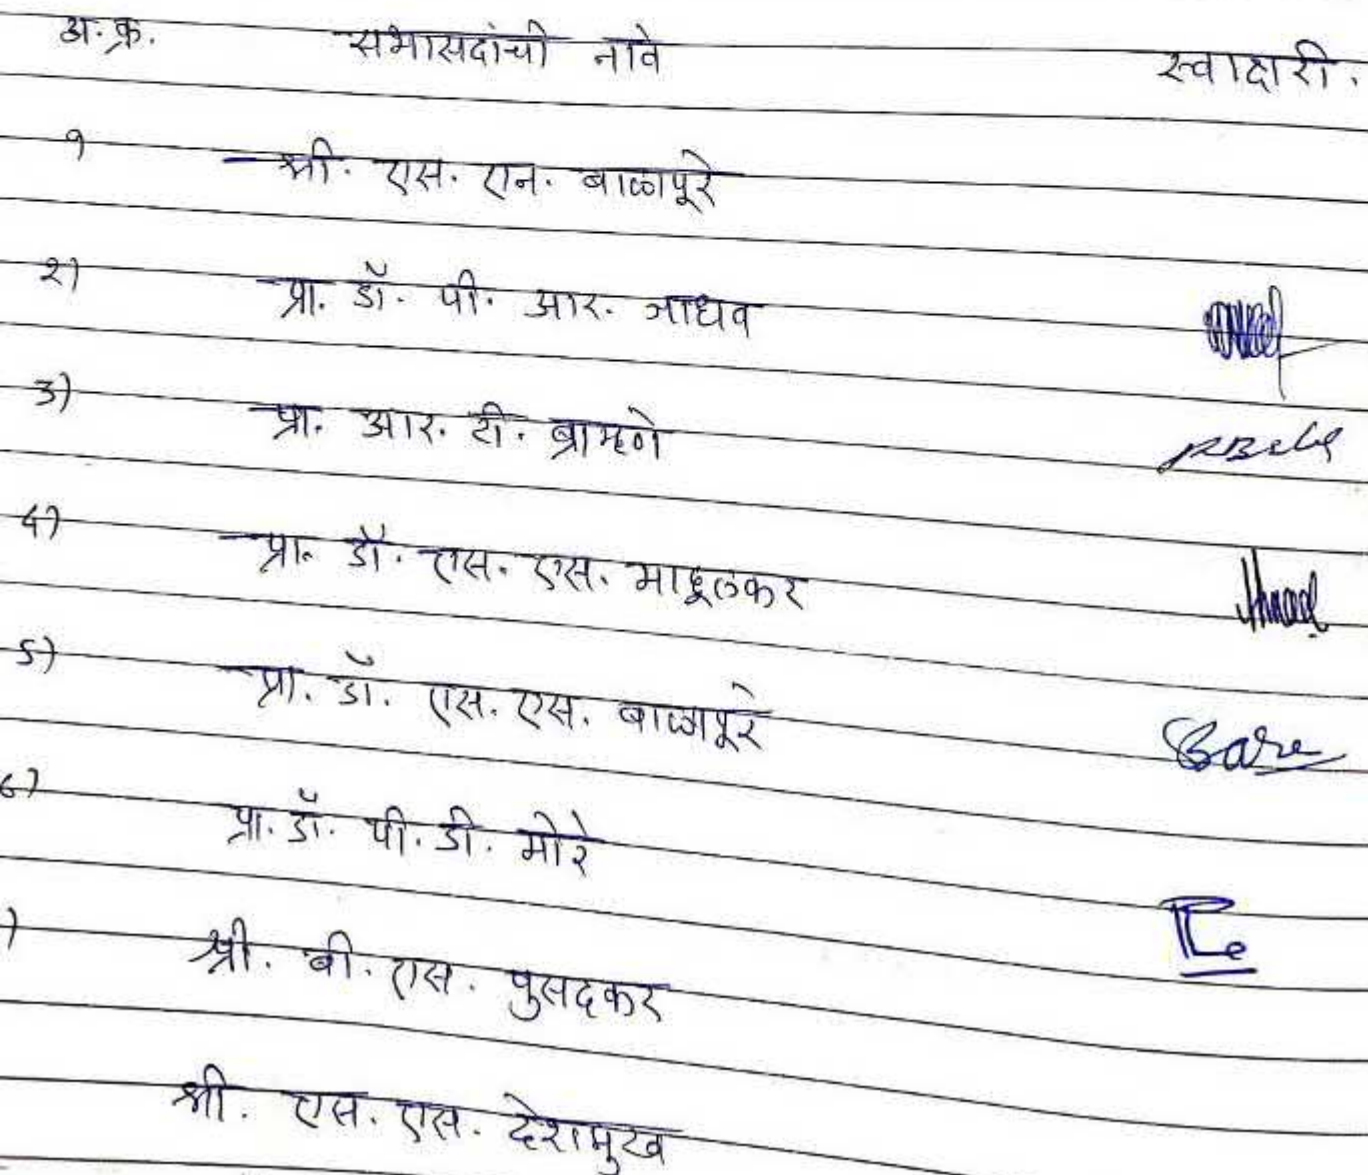 अ.क्र. सभासदांची नावे स्वाक्षरी.
१ श्री. एस. एन. बाळापूरे
२) प्रा. डॉ. पी. आर. जाधव
३) प्रा. आर. टी. ब्राम्हणे
४) प्रा. डॉ. एस. एस.
५) प्रा. डॉ. एस. एस. बाळापूरे
६) प्रा. डॉ. पी. डी. मोरे
) श्री. बी. एस. पुसदकर
श्री. एस. एस. देशमुख